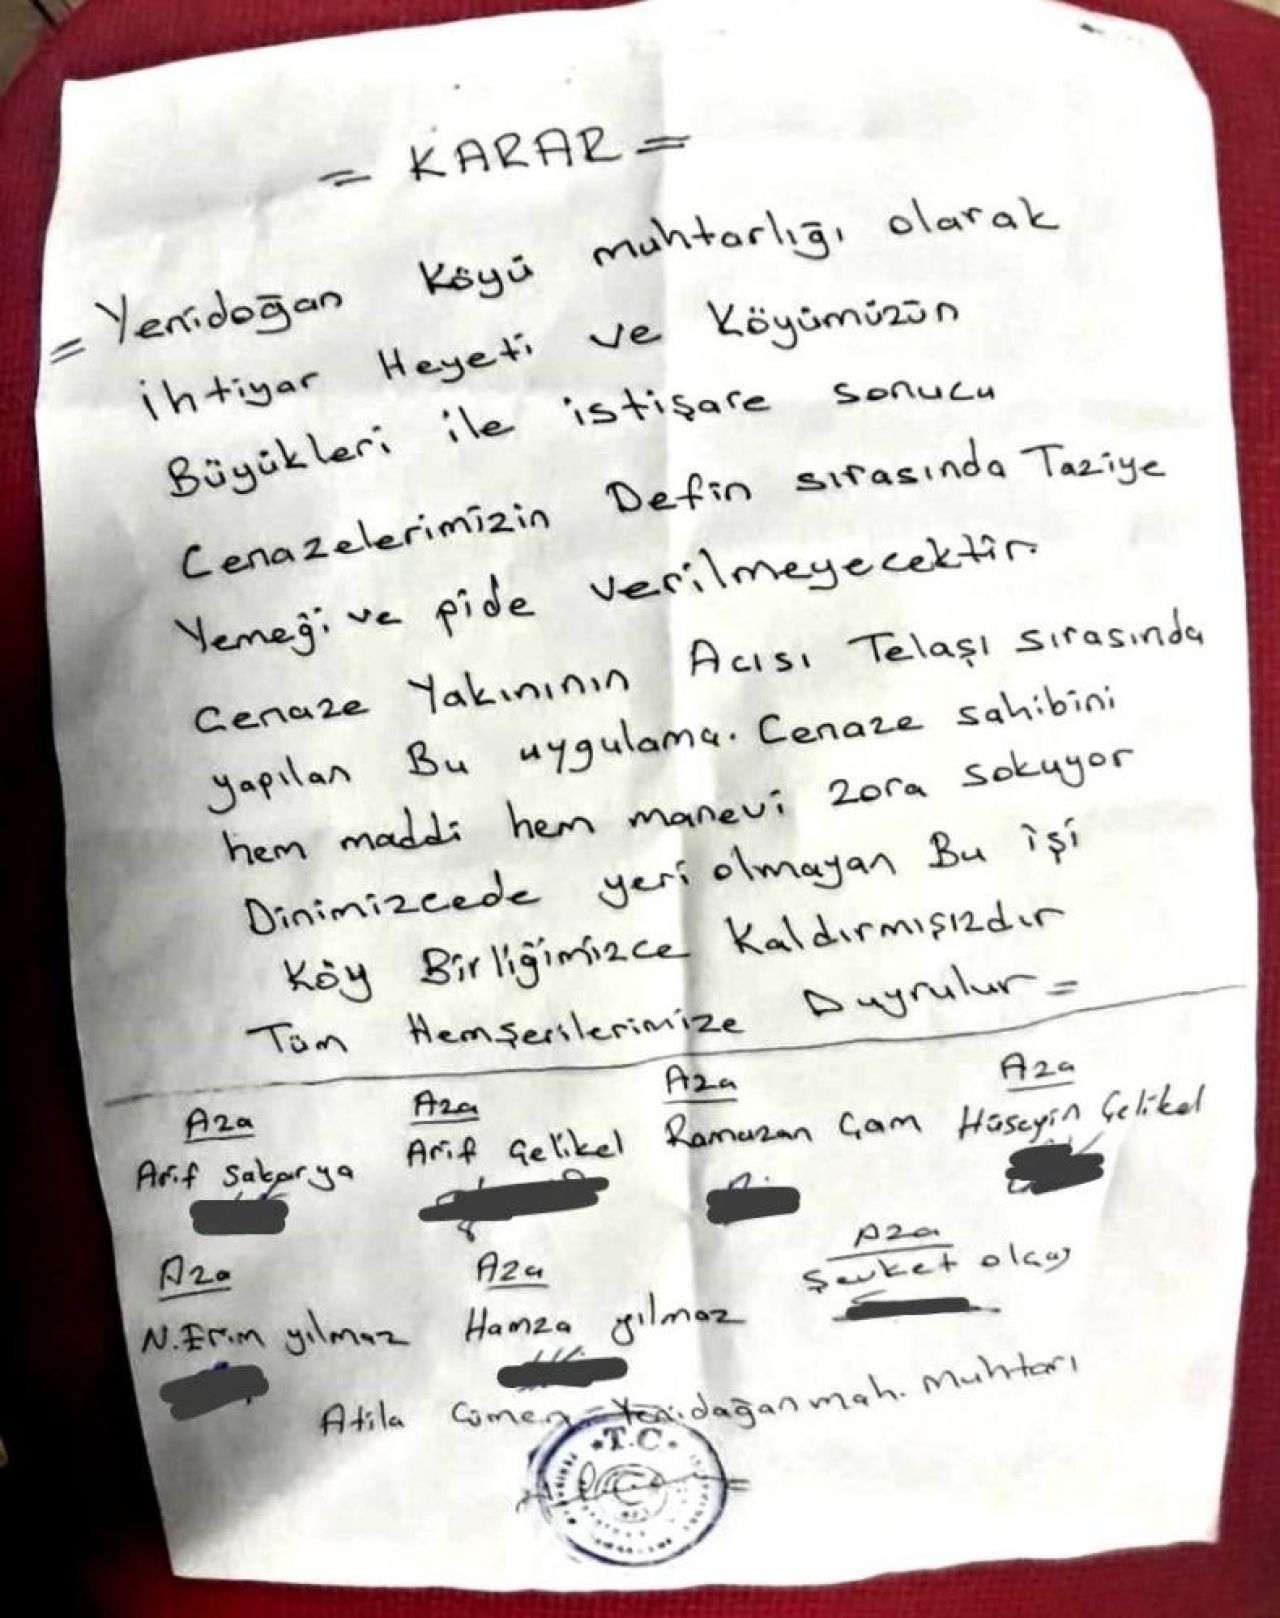 = KARAR =
= Yenidoğan Köyü muhtarlığı olarak
İhtiyar Heyeti ve Köyümüzün
Büyükleri ile istişare sonucu
Cenazelerimizin Defin sırasında Taziye
Yemeği ve pide verilmeyecektir.
Cenaze Yakınının Acısı Telaşı sırasında
yapılan Bu uygulama. Cenaze sahibini
hem maddi hem manevi zora sokuyor
Dinimizcede yeri olmayan Bu işi
Köy Birliğimizce Kaldırmışızdır
Tüm Hemşerilerimize Duyrulur =
Aza Aza Aza Aza
Arif Sakarya Arif Çelikel Ramazan Çam Hüseyin Çelikel
Aza Aza Aza
N.Erim yılmaz Hamza yılmaz Şevket olcay
Atila Yenidağan mah. Muhtarı
T.C.